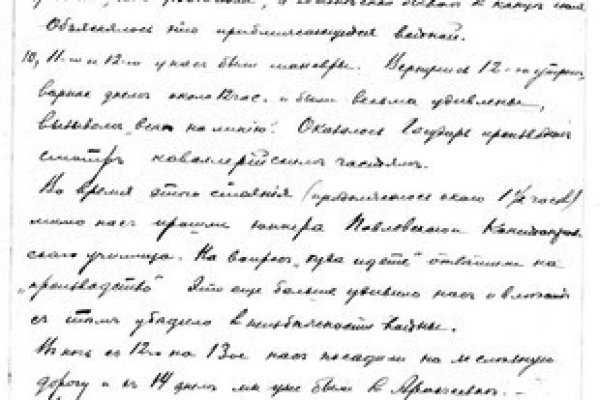 Объяснялось это приближающейся войной.
10, 11-го и 12-го у нас были манёвры. Вернулись 12-го утром,
днем около 12 час. и были весьма удивлены,
вызовом „всех на линию“. Оказалось Государь производит
смотр кавалерийским частям.
Во время этого стояния (продолжалось около 1½ часов)
мимо нас прошли юнкера Павловского
ского училища. На вопрос „куда идете“ ответили на
„производство“ Это еще больше удивило нас и
с тем убедило в неизбежности войны.
В ночь с 12го на 13ое нас посадили на железную
дорогу и в 14 днем мы уже были в